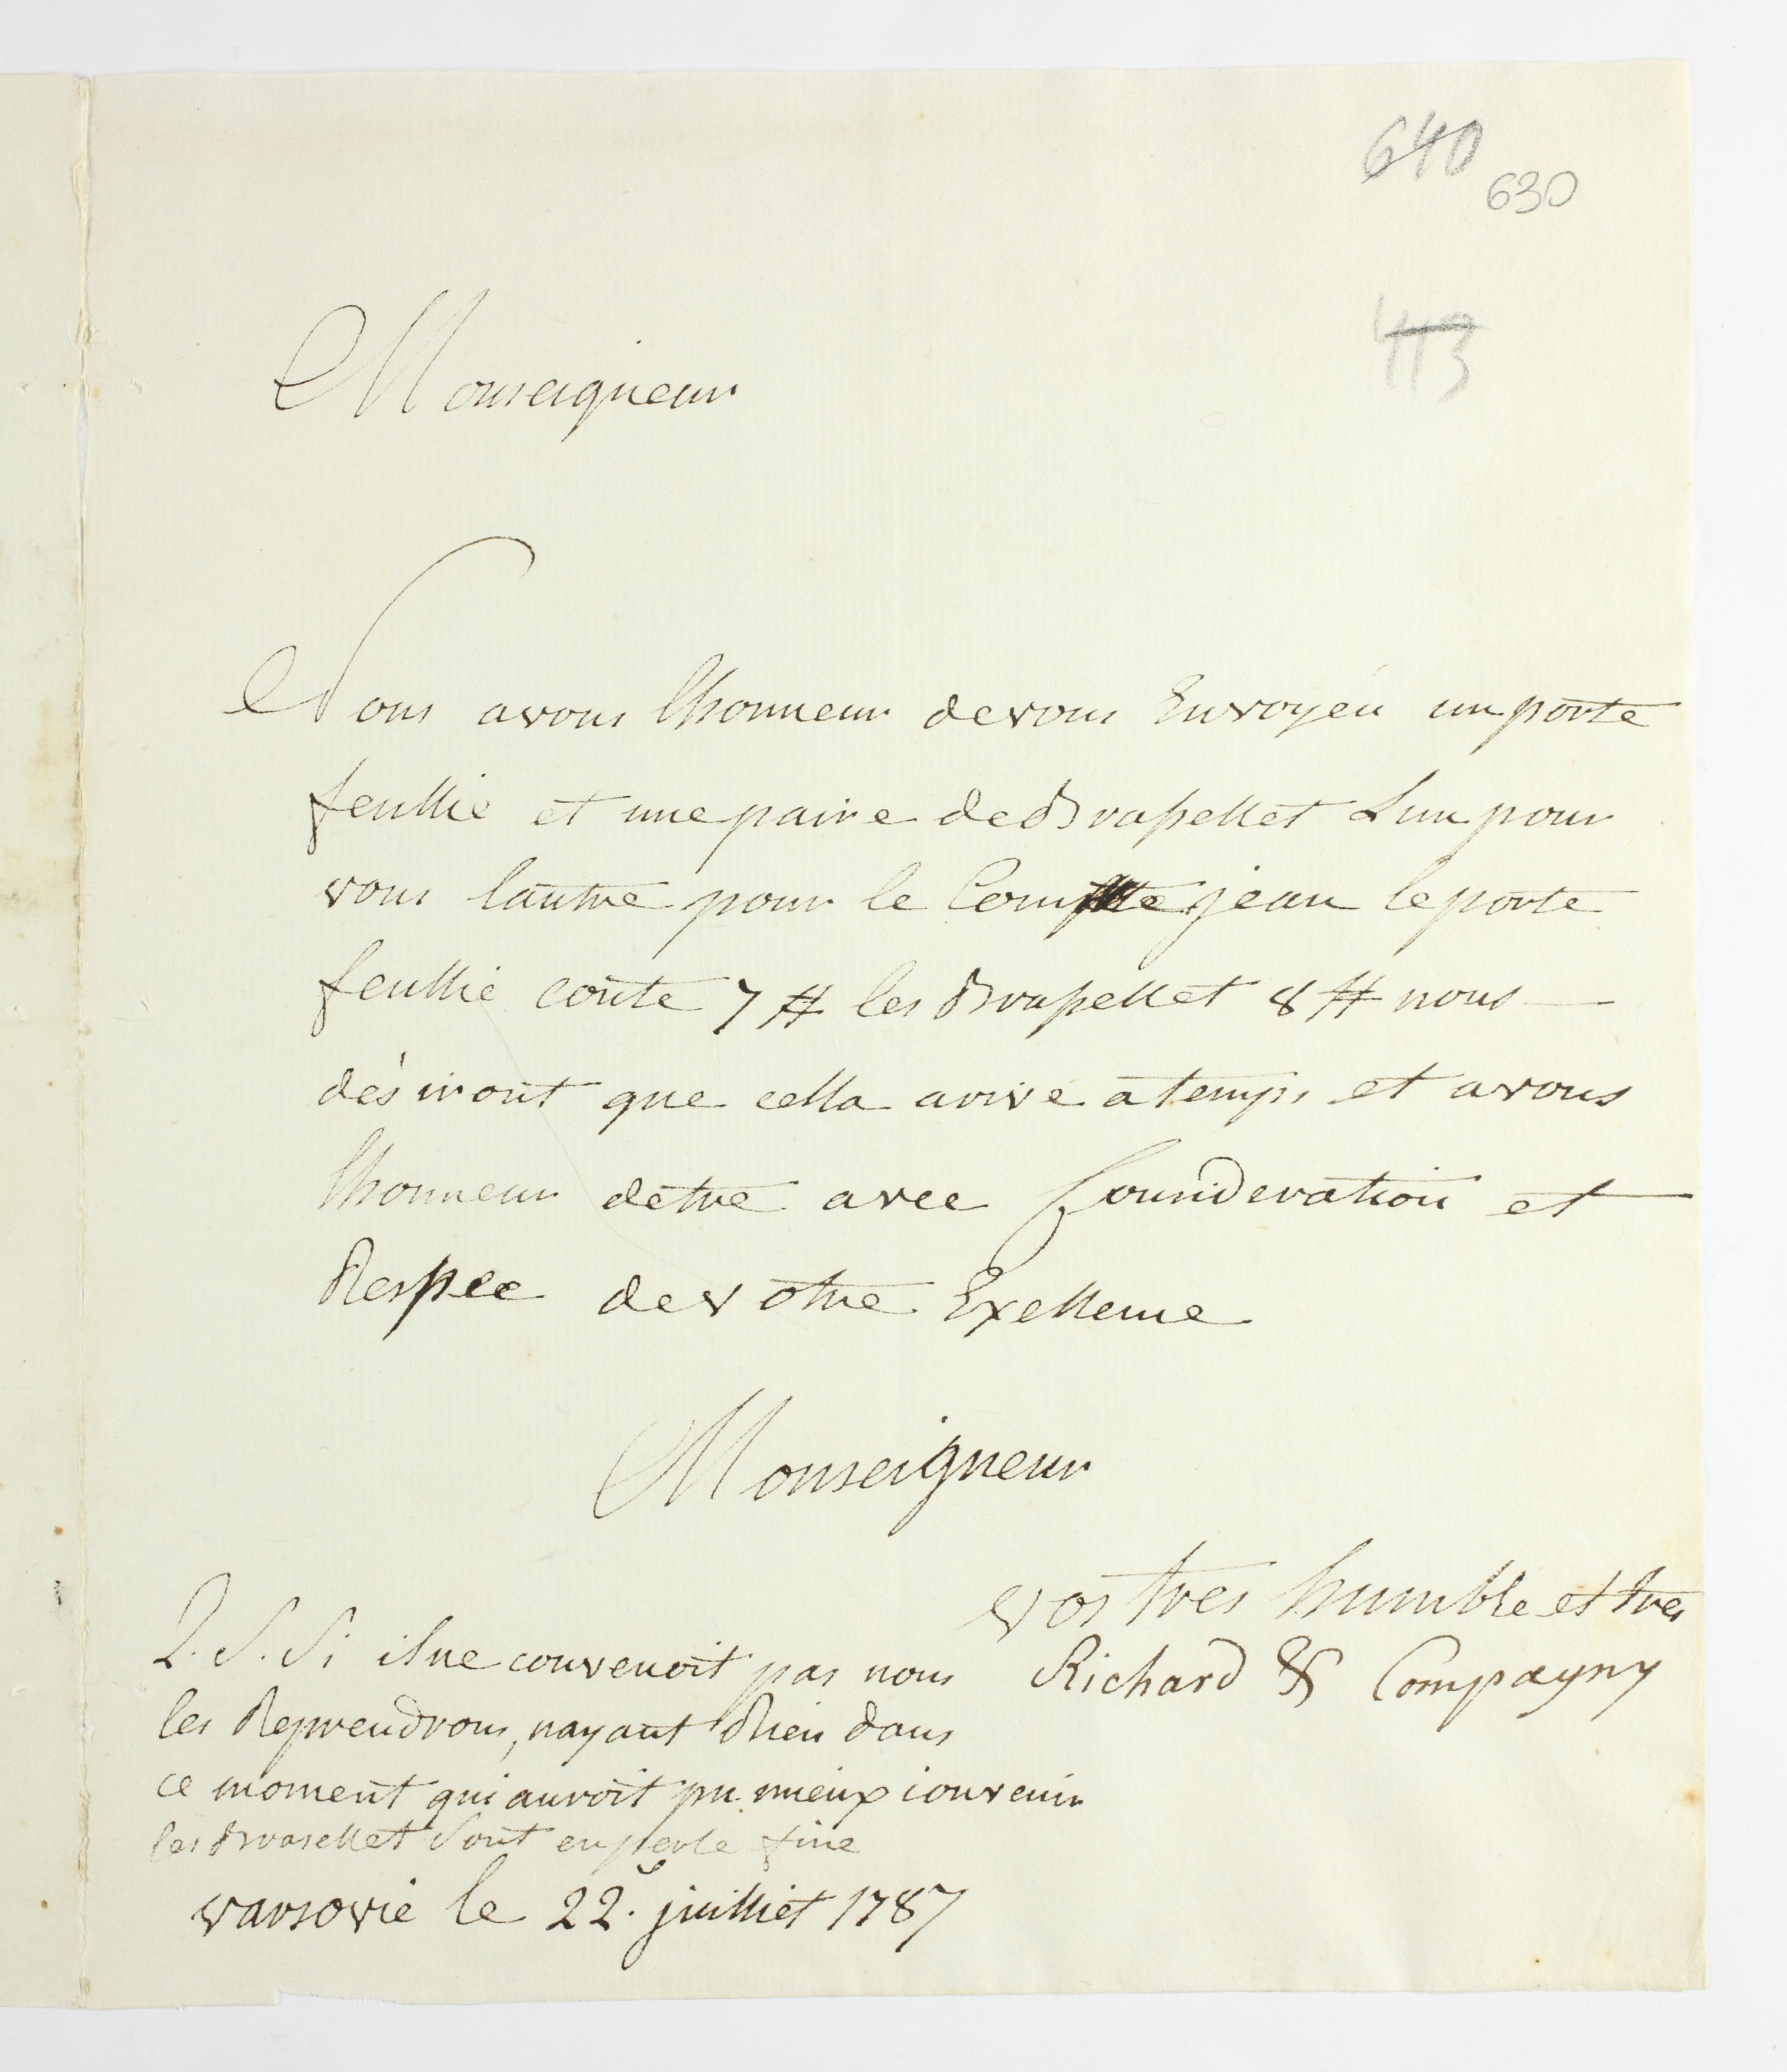 640
630
413
Monseigneur
Nous avons lhonneur devous Envoyér un porte
feullie et une paire de Brasellet Lun pour
vous lautre pour le Compte jean le porte
feullie coute 7 # les Brasellet 8 # nous
désiront que cella arive a temps et avons
lhonneur detre avec Considération et
Respec de votre Exellence
Monseigneur
vos tres humble et tres
Richard & Compagny
P.S. Si il ne convenoit pas nous
les Reprendrons, nayant Rien dans
ce moment qui auroit pu mieux convenir
les Brasellet Sont en perle fine
varsovie le 22. juilliet 1787